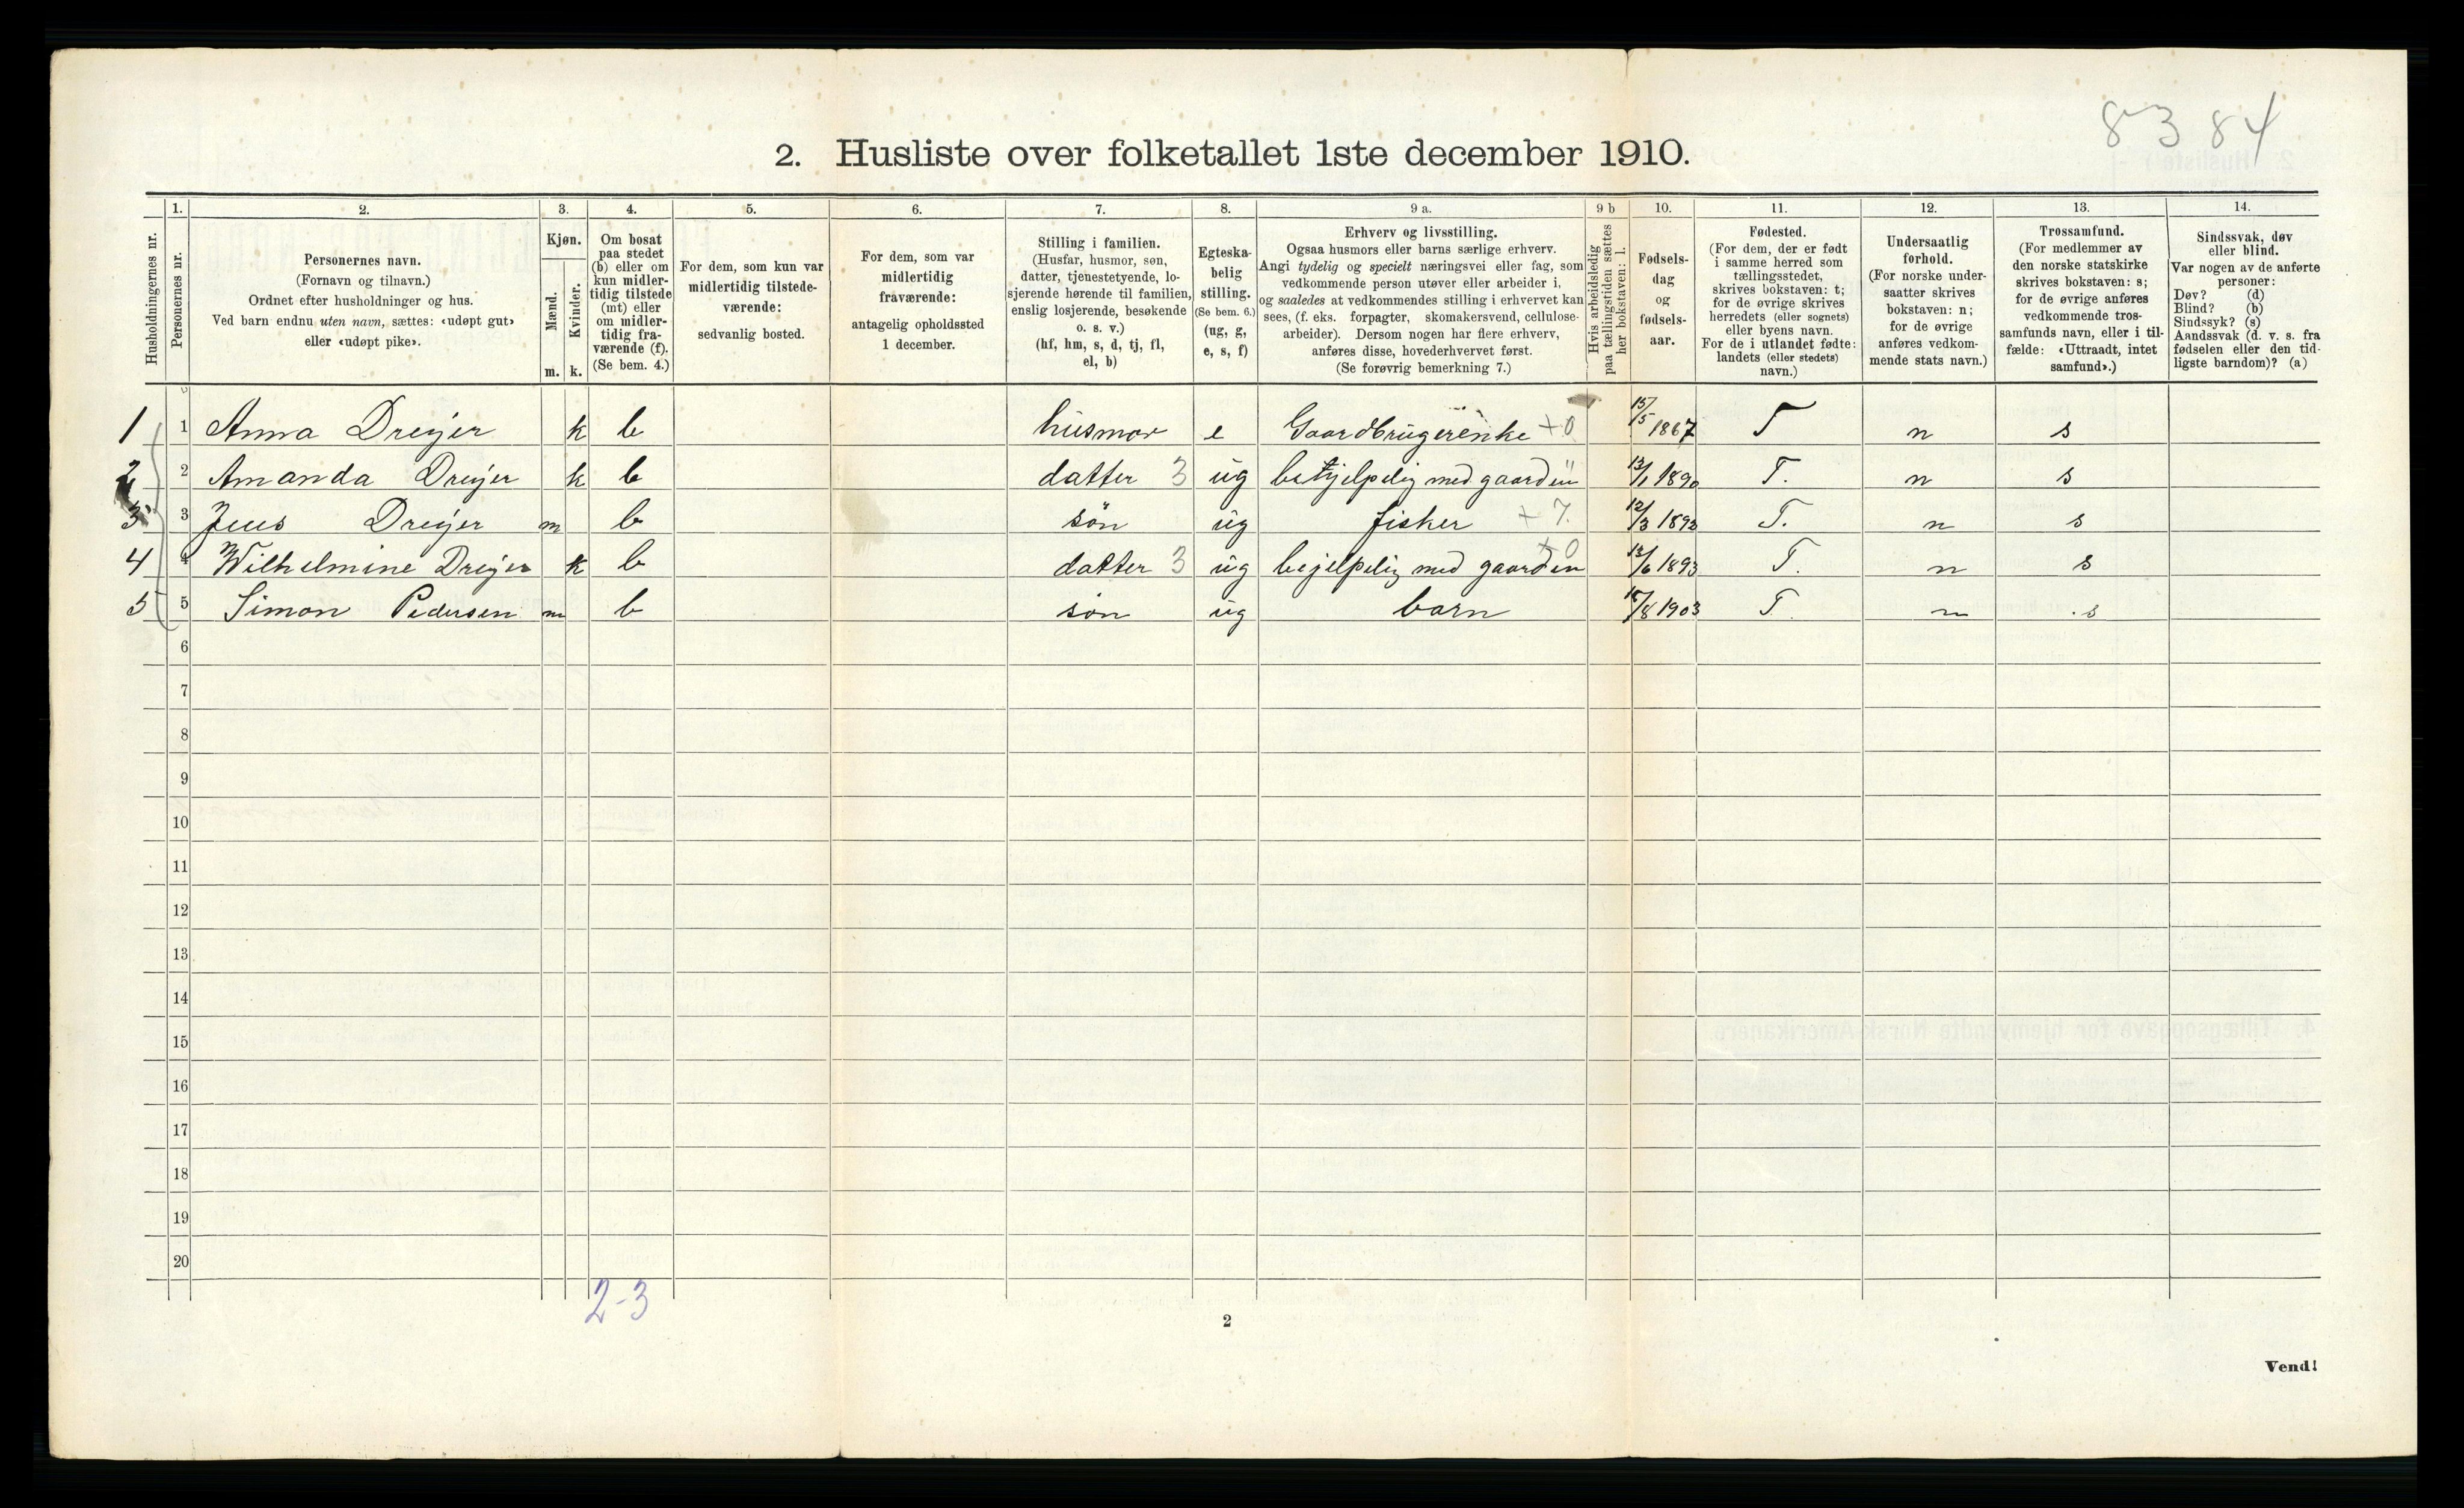 83 84
2. Husliste over folketallet 1ste december 1910.
Husholdningernes nr.
1.
Personernes nr.
2.
Personernes navn.
(Fornavn og tilnavn.)
Ordnet efter husholdninger og hus.
Ved barn endnu uten navn, sættes: «udøpt gut»
eller «udøpt pike».
3.
Kjøn.
Mænd.
Kvinder.
m. k.
4.
Om bosat
paa stedet
(b) eller om
kun midler-
tidig tilstede
(mt) eller
om midler-
tidig fra-
værende (f).
(Se bem. 4.)
5.
For dem, som kun var
midlertidig tilstede-
værende:
sedvanlig bosted.
6.
For dem, som var
midlertidig
fraværende:
antagelig opholdssted
1 december.
7.
Stilling i familien.
(Husfar, husmor, søn,
datter, tjenestetyende, lo-
sjerende hørende til familien,
enslig losjerende, besøkende
o. s. v.)
(hf, hm, s, d, tj, fl,
el, b)
8.
Egteska-
belig
stilling.
(Se bem. 6.)
(ug, g,
e, s, f)
9 a.
Erhverv og livsstilling.
Ogsaa husmors eller barns særlige erhverv.
Angi tydelig og specielt næringsvei eller fag, som
vedkommende person utøver eller arbeider i,
og saaledes at vedkommendes stilling i erhvervet kan
sees, (f. eks. forpagter, skomakersvend, cellulose-
arbeider). Dersom nogen har flere erhverv,
anføres disse, hovederhvervet først.
(Se forøvrig bemerkning 7.)
9 b
Hvis arbeidsledig
paa tællingstiden sættes
her bokstaven: l.
10.
Fødsels-
dag
og
fødsels-
aar.
11.
Fødested.
(For dem, der er født
i samme herred som
tællingsstedet,
skrives bokstaven: t;
for de øvrige skrives
herredets (eller sognets)
eller byens navn.
For de i utlandet fødte:
landets (eller stedets)
navn.)
12.
Undersaatlig
forhold.
(For norske under-
saatter skrives
bokstaven: n;
for de øvrige
anføres vedkom-
mende stats navn.)
13.
Trossamfund.
(For medlemmer av
den norske statskirke
skrives bokstaven: s;
for de øvrige anføres
vedkommende tros-
samfunds navn, eller i til-
fælde: «Uttraadt, intet
samfund».)
14.
Sindssvak, døv
eller blind.
Var nogen av de anførte
personer:
Døv? (d)
Blind? (b)
Sindssyk? (s)
Aandssvak (d. v. s. fra
fødselen eller den tid-
ligste barndom)? (a)
1 1 Anna Dreijer k b husmor e Gaardbrugerenke +0 15/5 1867 T n s
2 2 Amanda Dreijer k b datter 3 ug behjelpelig med gaarden 13/1 1890 T. n s
3 3 Jens Dreijer m b søn ug fisker +7. 12/3 1892 T. n s
4 4 Wilhelmine Dreijer k b datter 3 ug bejelpelig med gaarden +0 13/6 1893 T. n s
5 5 Simon Pedersen m b søn ug barn /8 1903 T n s
6
7
8
9
10
11
12
13
14
15
16
17
18
19
20
2-3
2
Vend!